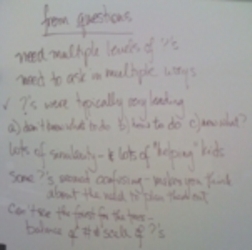 from questions
need multiple levels of ?'s
need to ask in multiple ways
✓ ?'s were typically very leading
a) don't know what to do b) how to do c) now what?
lots of similarity - & lots of "helping" kids
some ?'s worded confusing - makes you think
about the need to plan them out
Can't see the forest for the trees -
balance of # & scale of ?'s